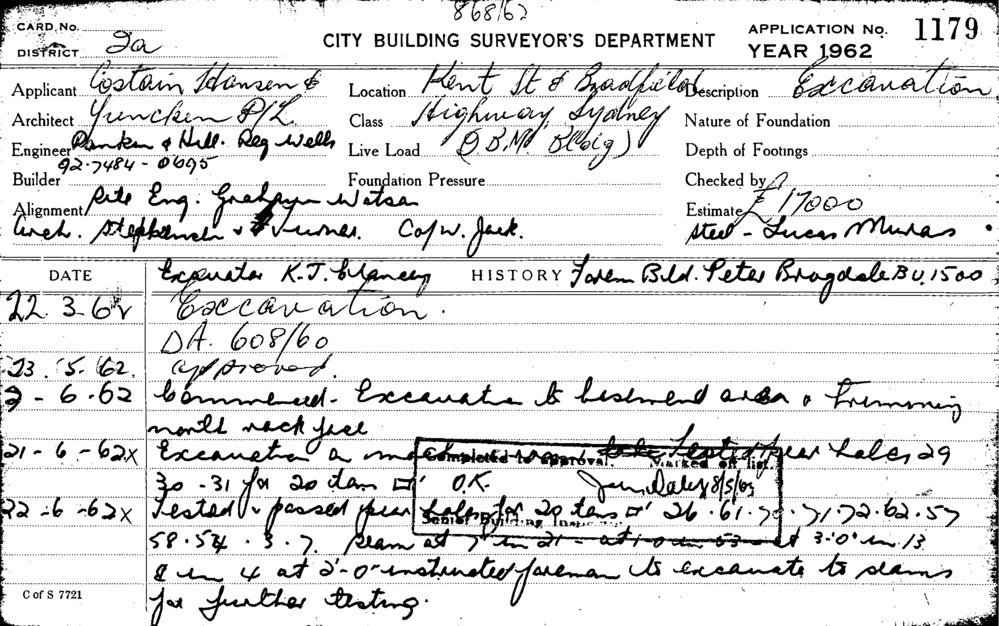 868/62
CARD No.
DISTRICT 2a
CITY BUILDING SURVEYOR'S DEPARTMENT
APPLICATION No. 1179
YEAR 1962
Applicant Costain Hansen &
Location Kent St & Bradfield
Description Excavation
Architect Yuncken P/L
Class Highway, Sydney
Nature of Foundation
Engineer Rankin & Hill. Reg Wells
Live Load (I.B.M. Bldig)
Depth of Footings
92-7484 - 0695
Builder
Foundation Pressure
Checked by
Alignment Site Eng. Grahame Watson
Estimate £17000
Arch. Stephenson & Turner. C of W. Jack.
Steel - Lucas Muras
DATE
Excavator K.J. Clancey
HISTORY
Forem Bld. Peter Brogdale BU.1500
22.3.62 Excavation.
DA. 608/60
23.5.62. approved.
2-6-62 Commenced - Excavation to basement area & trimming
north rock face
21-6-62x Excavation on Tested pear holes 29
30-31 for 20 tons □' O.K.
Completed to approval. Marked off list.
8/5/63
Senior Building
22-6-62x Tested & passed pear holes for 20 tons □' 26.61.70.71.72.62.57
58.54.3.7. seam at 7" in 21 - at 1-0 in 53 - at 3'-0" in 13
& in 4 at 2'-0" instructed foreman to excavate to seams
for further testing.
C of S 7721